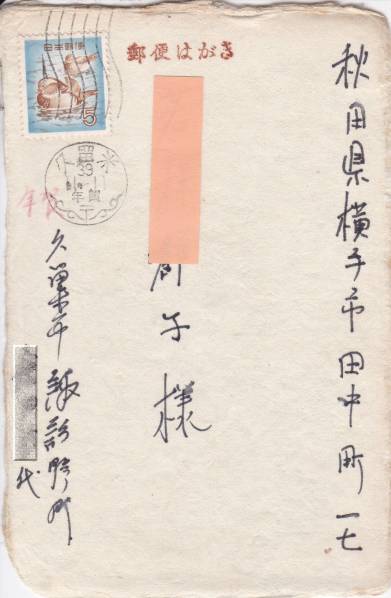 郵便はがき
日本郵便
5
久留米
39
年賀
年賀
秋田県横手市田中町一七
様
久留米市 諏訪野町
代